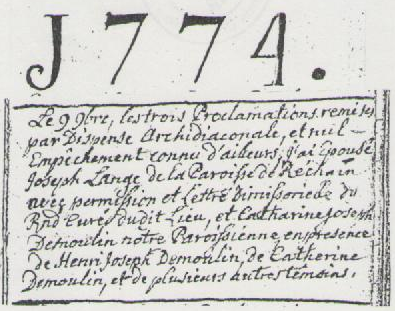 J774.
Le 9 9bre, les trois Proclamations remises
par Dispense Archidiaconale, et nul
Empêchement connu d'ailleurs, j'ai Epousé
Joseph Lange de la Paroisse de Réchain
avec permission et Lettre Dimissoriele du
Rnd Curé dudit Lieu, et Catharine Joseph
Demoulin notre Paroissienne en presence
de Henri Joseph Demoulin, de Catherine
Demoulin, et de plusieurs autres témoins.